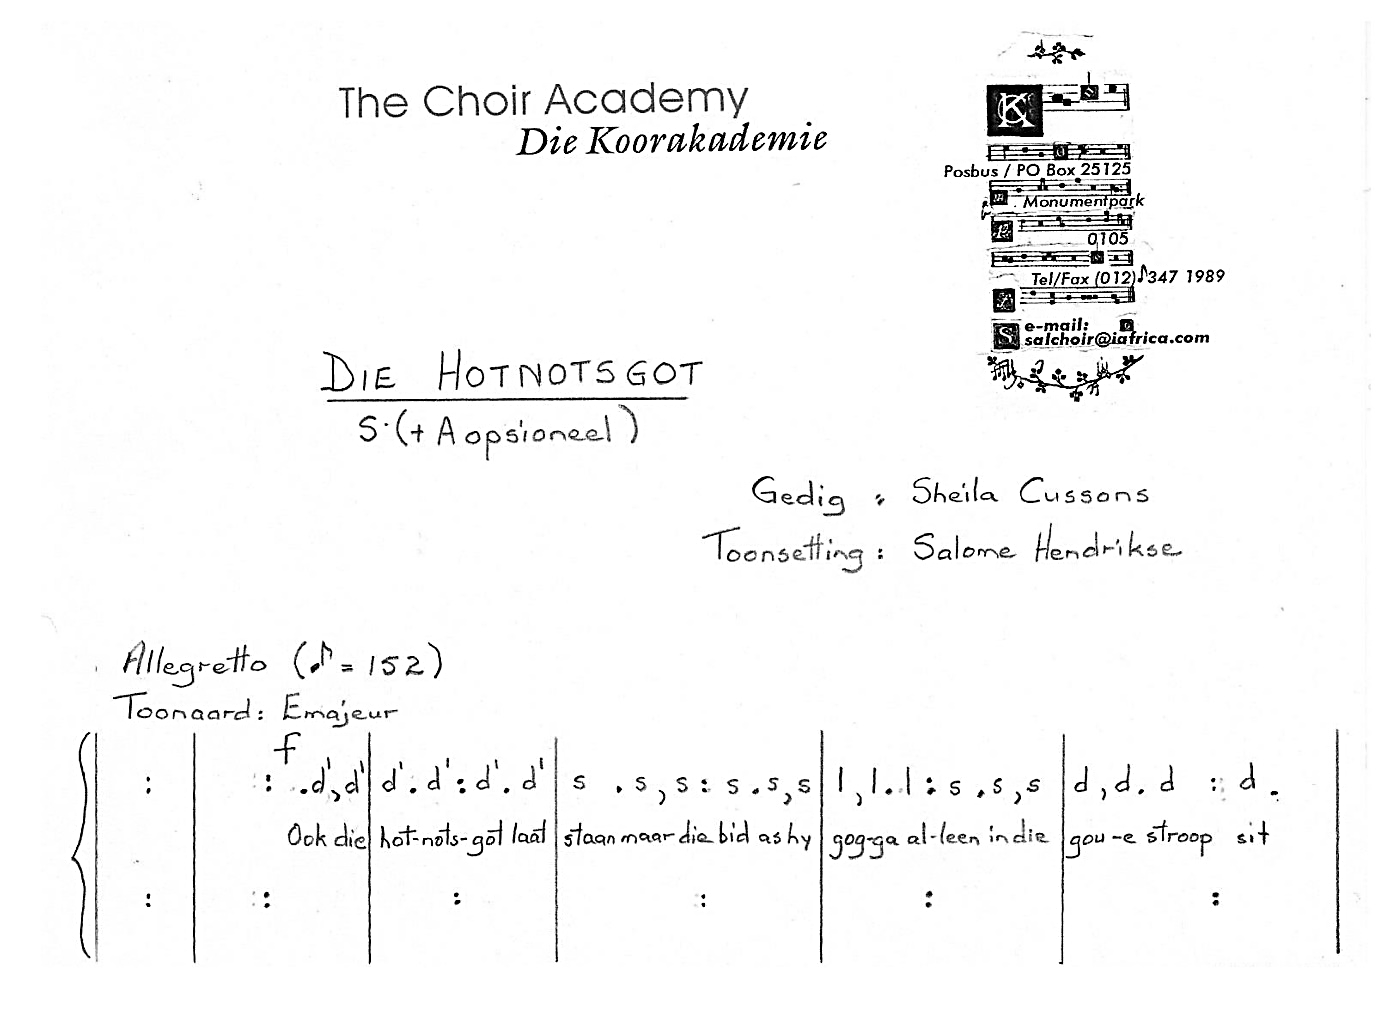 The Choir Academy
Die Koorakademie
Posbus / PO Box 25125
Monumentpark
0105
Tel/Fax (012) 347 1989
e-mail:
salchoir@iafrica.com
DIE HOTNOTSGOT
S. (+ A opsioneel)
Gedig : Sheila Cussons
Toonsetting : Salome Hendrikse
Allegretto (♪ = 152)
Toonaard : E majeur
f
: | : .d',d' | d'. d' : d'. d' | s . s , s : s . s , s | l , l . l : s . s , s | d , d . d : d .
Ook die | hot-nots-got laat | staan maar die bid as hy | gog-ga al-leen in die | gou-e stroop sit
: | : | : | : | : | :